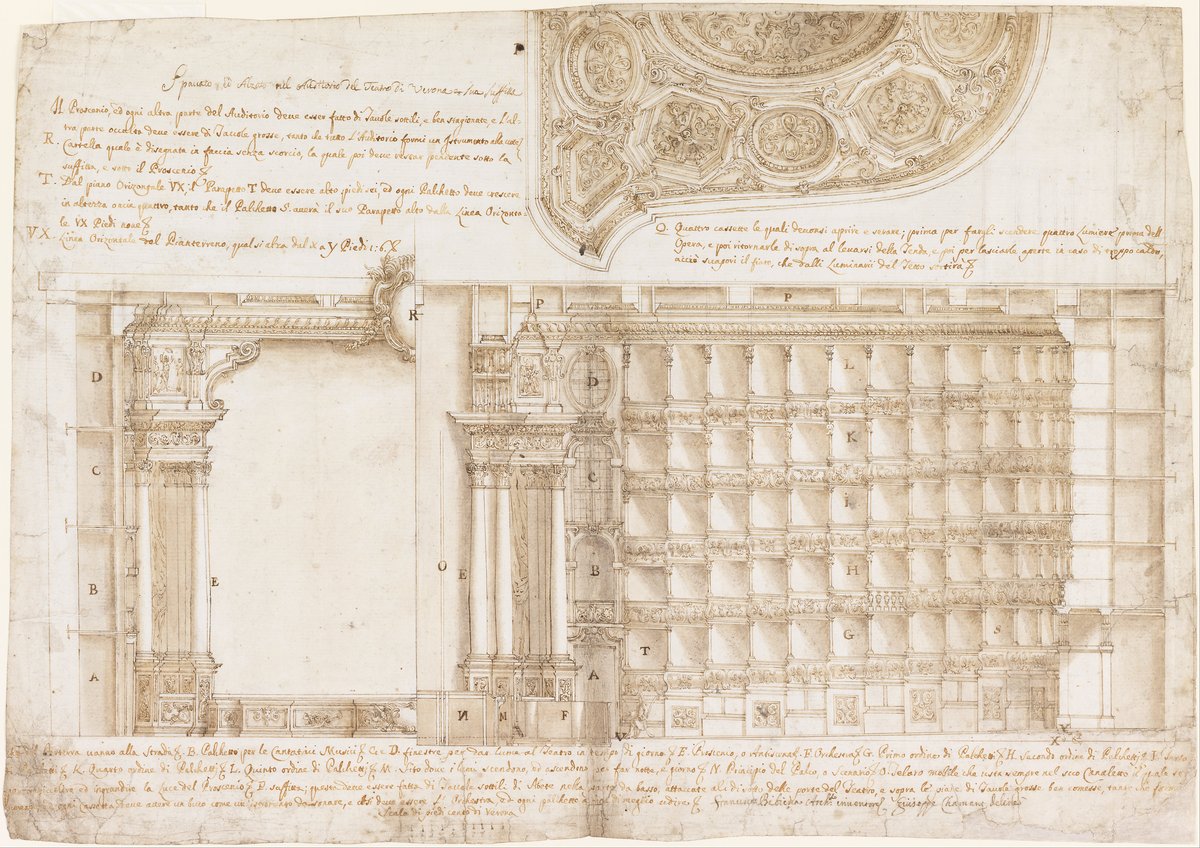 Spaccato ed Alzato nell Auditorio del Teatro di Verona e sua suffitta
Il Proscenio, ed ogni altra parte del Auditorio deve esser fatto di Tavole sottili, e ben stagionate, e l'al-
tra parte occulta deve essere di Tavole grosse, tanto che tutto l'Auditorio formi un Istrumento alla voce
R. Cartella quale è disegnata in faccia senza scorcio, la quale poi deve restar pendente sotto la
suffitta, e sotto il Proscenio
T. Dal piano Orizontale VX; il Parapetto T deve essere alto piedi sei, ed ogni Palchetto deve crescere
in altezza oncie quattro, tanto che il Palchetto S. averà il suo Parapetto alto dalla Linea Orizonta-
le VX Piedi nove
VX. Linea Orizontale del Pianterreno, qual si alza dal X a Y Piedi 1:6
Q. Quattro cassette le quali devonsi aprire e serare; prima per fargli scendere quattro Lumiere prima dell
Opera, e poi ritornarle di sopra al levarsi della Tenda, e poi per lasciarle aperte in caso di troppo caldo,
acciò svapori il fiato, che dalli Luminari del Tetto sortirà
P
R
P
P
D
D
L
C
K
C
I
B
E
O
E
B
H
G
S
T
A
A
N
M
F
V
X
Y
vanno alla Strada B. Palchetto per le Cantatrici Musici C. e D. finestre per dar lume al Teatro in tempo di giorno E. Proscenio, o Antiscena F. Orchestra G. Primo ordine di Palchetti H. Secondo ordine di Palchetti I. Terzo
K. Quarto ordine di Palchetti L. Quinto ordine di Palchetti M. Sito dove i lumi scendono, ed ascendono per far notte, e giorno N. Principio del Palco, o Scenario O. Telaro mobile che resta sempre nel suo Canaletto il quale
ed ingrandire la luce del Proscenio P. Suffitta; questa deve essere fatta di Tavole sottili di Abete nella parte da basso, attaccate al di sotto delle porte del Teatro, e sopra le piane di Tavole grosse ben comesse, tanto che formi
Cassetta deve avere un buco come un istromento da sonare, e così deve essere l'Orchestra ed ogni palchetto Francesco Bibiena Arch. inventor Giuseppe Chamant delin
Scala di piedi cento di Verona